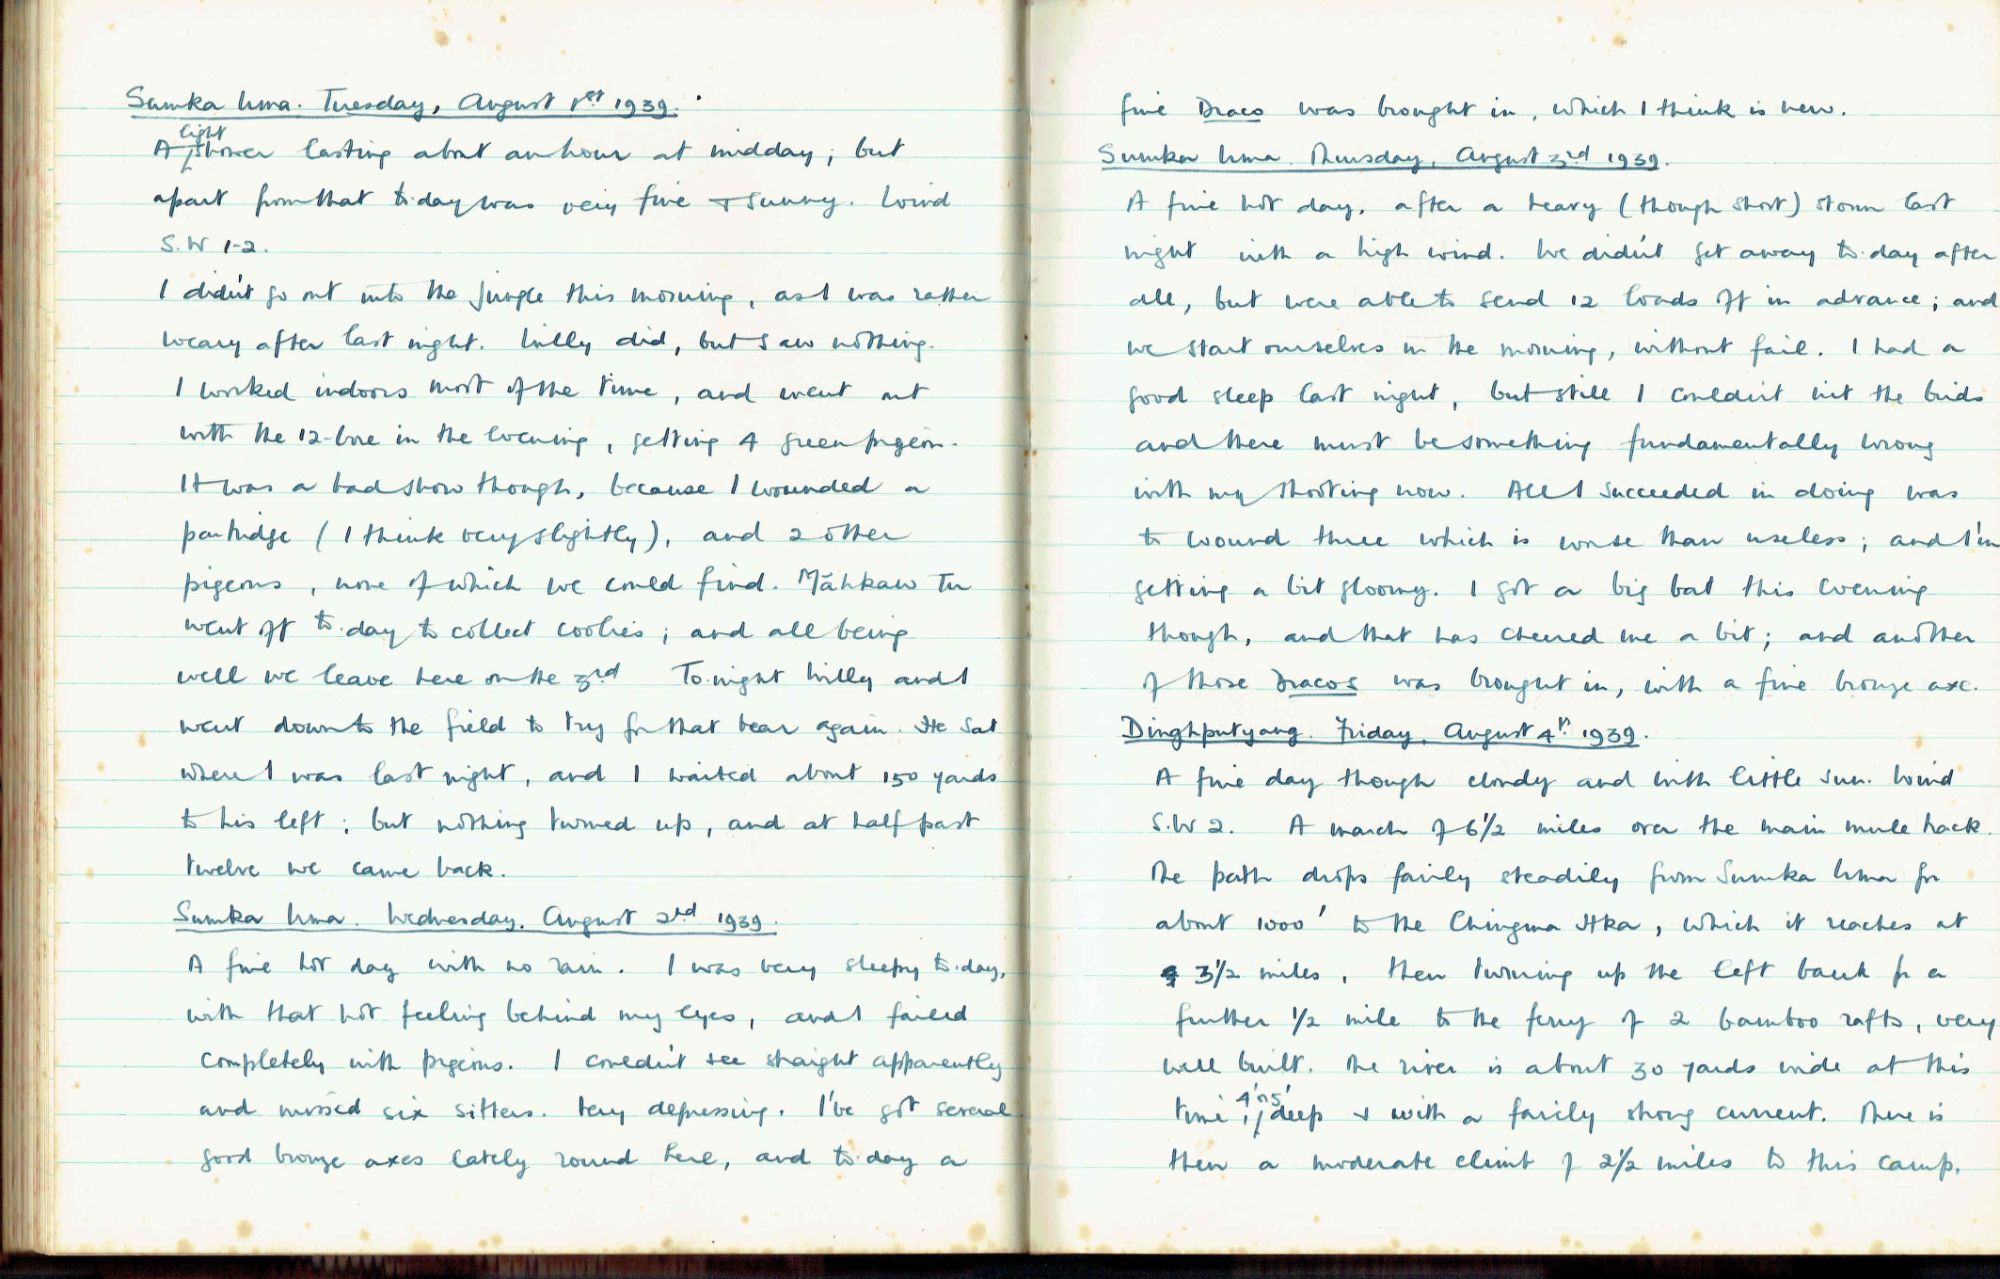 Sumka Uma. Tuesday, August 1st 1939.
A light shower lasting about an hour at midday; but
apart from that to-day was very fine + sunny. Wind
S.W 1-2.
I didn't go out into the jungle this morning, as I was rather
weary after last night. Willy did, but saw nothing.
I worked indoors most of the time, and went out
with the 12-bore in the evening, getting 4 green pigeon.
It was a bad show though, because I wounded a
partridge (I think very slightly), and 2 other
pigeons, none of which we could find. Mahkaw Tu
went off to-day to collect coolies; and all being
well we leave here on the 3rd To-night Willy and I
went down to the field to try for that bear again. He sat
where I was last night, and I waited about 150 yards
to his left; but nothing turned up, and at half past
twelve we came back.
Sumka Uma. Wednesday. August 2nd 1939.
A fine hot day with no rain. I was very sleepy to-day,
with that hot feeling behind my eyes, and I failed
completely with pigeons. I couldn't see straight apparently
and missed six sitters. Very depressing. I've got several
good bronze axes lately round here, and to-day a
fine Draco was brought in, which I think is new.
Sumka Uma. Thursday, August 3rd 1939.
A fine hot day, after a heavy (though short) storm last
night with a high wind. We didn't get away to-day after
all, but were able to send 12 loads off in advance; and
we start ourselves in the morning, without fail. I had a
good sleep last night, but still I couldn't hit the birds
and there must be something fundamentally wrong
with my shooting now. All I succeeded in doing was
to wound three which is worse than useless; and I'm
getting a bit gloomy. I got a big bat this evening
though, and that has cheered me a bit; and another
of those Dracos was brought in, with a fine bronze axe.
Dinghputyang. Friday, August 4th 1939.
A fine day though cloudy and with little sun. Wind
S.W 2. A march of 6 1/2 miles over the main mule track.
The path drops fairly steadily from Sumka Uma for
about 1000' to the Chingma Hka, which it reaches at
3 1/2 miles, then turning up the left bank for a
further 1/2 mile to the ferry of 2 bamboo rafts, very
well built. The river is about 30 yards wide at this
time, 4' or 5' deep + with a fairly strong current. There is
then a moderate climb of 2 1/2 miles to this camp.